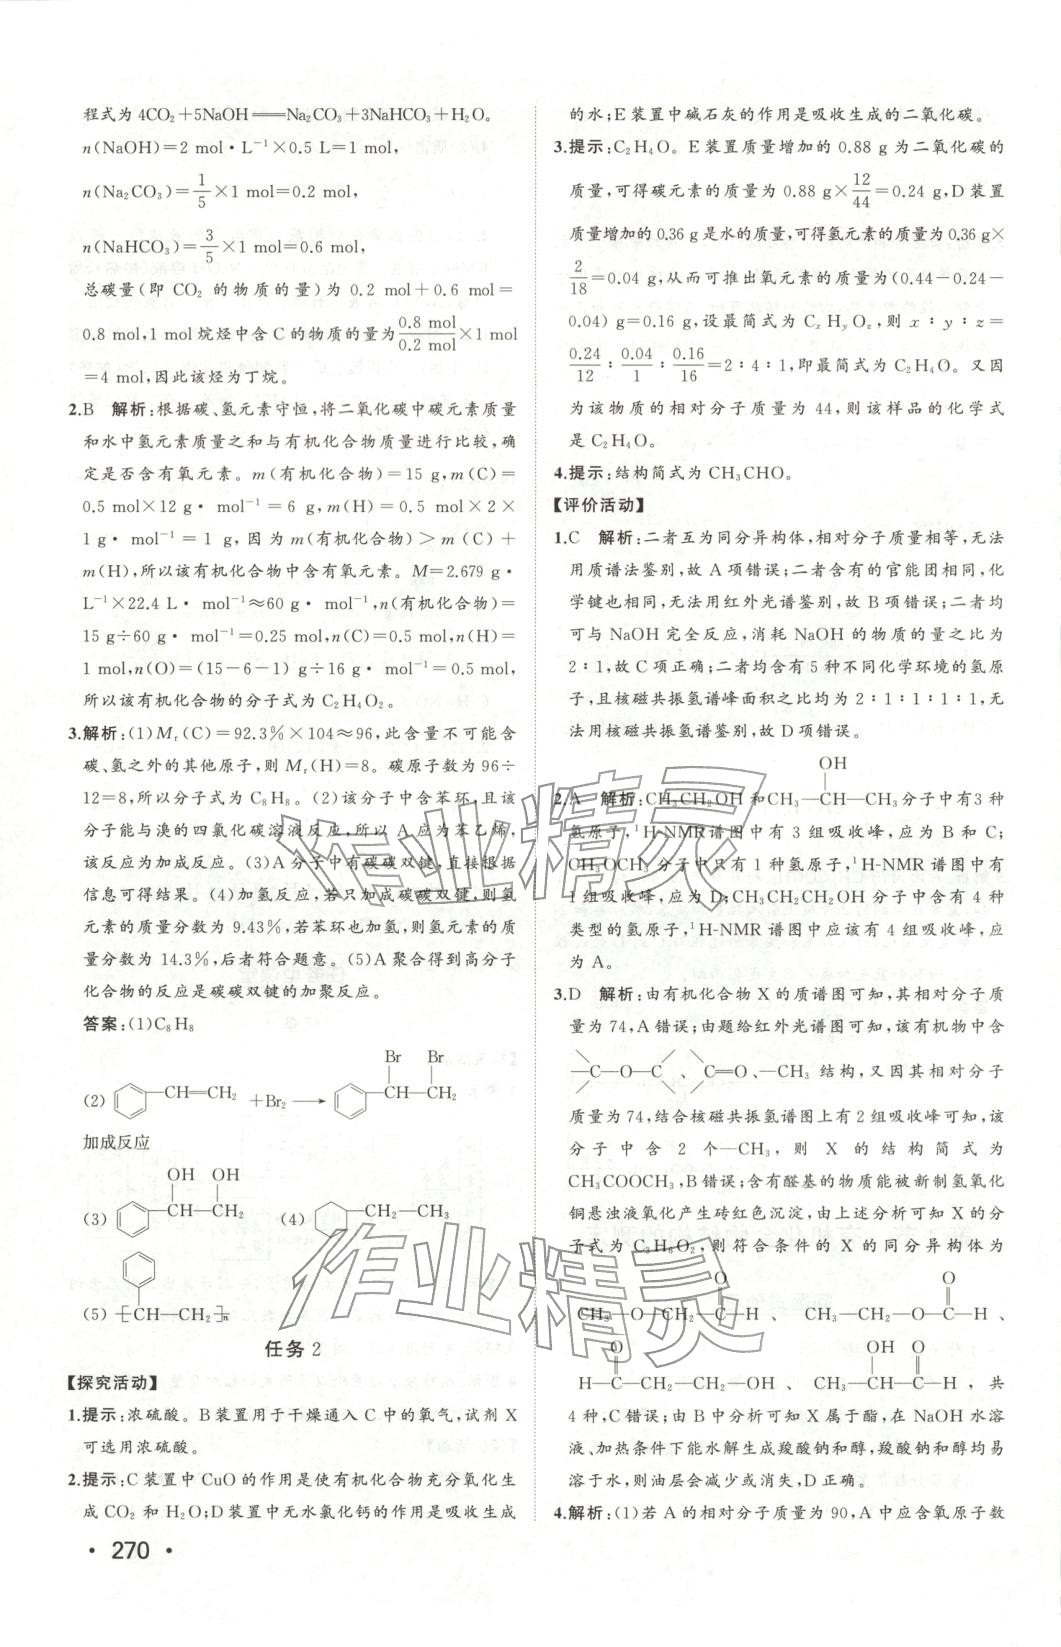 程式为 4CO₂+5NaOH══Na₂CO₃+3NaHCO₃+H₂O。
n(NaOH)=2 mol·L⁻¹×0.5 L=1 mol,
n(Na₂CO₃)=1/5×1 mol=0.2 mol,
n(NaHCO₃)=3/5×1 mol=0.6 mol,
总碳量(即 CO₂ 的物质的量)为 0.2 mol+0.6 mol=
0.8 mol,1 mol 烷烃中含 C 的物质的量为 0.8 mol/0.2 mol×1 mol
=4 mol,因此该烃为丁烷。
2.B 解析:根据碳、氢元素守恒,将二氧化碳中碳元素质量
和水中氢元素质量之和与有机化合物质量进行比较,确
定是否含有氧元素。m(有机化合物)=15 g,m(C)=
0.5 mol×12 g· mol⁻¹=6 g,m(H)=0.5 mol×2×
1 g· mol⁻¹=1 g,因为 m(有机化合物)>m(C)+
m(H),所以该有机化合物中含有氧元素。M=2.679 g·
L⁻¹×22.4 L· mol⁻¹≈60 g· mol⁻¹,n(有机化合物)=
15 g÷60 g· mol⁻¹=0.25 mol,n(C)=0.5 mol,n(H)=
1 mol,n(O)=(15-6-1) g÷16 g· mol⁻¹=0.5 mol,
所以该有机化合物的分子式为 C₂H₄O₂。
3.解析:(1)Mᵣ(C)=92.3%×104≈96,此含量不可能含
碳、氢之外的其他原子,则 Mᵣ(H)=8。碳原子数为 96÷
12=8,所以分子式为 C₈H₈。(2)该分子中含苯环,且该
分子能与溴的四氯化碳溶液反应,所以 A 应为苯乙烯,
该反应为加成反应。(3)A 分子中有碳碳双键,直接根据
信息可得结果。(4)加氢反应,若只加成碳碳双键,则氢
元素的质量分数为 9.43%,若苯环也加氢,则氢元素的质
量分数为 14.3%,后者符合题意。(5)A 聚合得到高分子
化合物的反应是碳碳双键的加聚反应。
答案:(1)C₈H₈
Br Br
(2) CH═CH₂ +Br₂ ⟶ CH—CH₂
加成反应
OH OH
(3) CH—CH₂ (4) CH₂—CH₃
(5) [CH—CH₂]n
任务 2
【探究活动】
1.提示:浓硫酸。B 装置用于干燥通入 C 中的氧气,试剂 X
可选用浓硫酸。
2.提示:C 装置中 CuO 的作用是使有机化合物充分氧化生
成 CO₂ 和 H₂O;D 装置中无水氯化钙的作用是吸收生成
· 270 ·
的水;E 装置中碱石灰的作用是吸收生成的二氧化碳。
3.提示:C₂H₄O。E 装置质量增加的 0.88 g 为二氧化碳的
质量,可得碳元素的质量为 0.88 g×12/44=0.24 g,D 装置
质量增加的 0.36 g 是水的质量,可得氢元素的质量为 0.36 g×
2/18=0.04 g,从而可推出氧元素的质量为(0.44-0.24-
0.04) g=0.16 g,设最简式为 CₓHᵧO_z,则 x∶y∶z=
0.24/12∶0.04/1∶0.16/16=2∶4∶1,即最简式为 C₂H₄O。又因
为该物质的相对分子质量为 44,则该样品的化学式
是 C₂H₄O。
4.提示:结构简式为 CH₃CHO。
【评价活动】
1.C 解析:二者互为同分异构体,相对分子质量相等,无法
用质谱法鉴别,故 A 项错误;二者含有的官能团相同,化
学键也相同,无法用红外光谱鉴别,故 B 项错误;二者均
可与 NaOH 完全反应,消耗 NaOH 的物质的量之比为
2∶1,故 C 项正确;二者均含有 5 种不同化学环境的氢原
子,且核磁共振氢谱峰面积之比均为 2∶1∶1∶1∶1,无
法用核磁共振氢谱鉴别,故 D 项错误。
OH
2.A 解析:CH₃CH₂OH 和 CH₃—CH—CH₃ 分子中有 3 种
氢原子,¹H-NMR 谱图中有 3 组吸收峰,应为 B 和 C;
CH₃OCH₃ 分子中只有 1 种氢原子,¹H-NMR 谱图中有
1 组吸收峰,应为 D;CH₃CH₂CH₂OH 分子中含有 4 种
类型的氢原子,¹H-NMR 谱图中应该有 4 组吸收峰,应
为 A。
3.D 解析:由有机化合物 X 的质谱图可知,其相对分子质
量为 74,A 错误;由题给红外光谱图可知,该有机物中含
—C—O—C 、 C═O、—CH₃ 结构,又因其相对分子
质量为 74,结合核磁共振氢谱图上有 2 组吸收峰可知,该
分子中含 2 个—CH₃,则 X 的结构简式为
CH₃COOCH₃,B 错误;含有醛基的物质能被新制氢氧化
铜悬浊液氧化产生砖红色沉淀,由上述分析可知 X 的分
子式为 C₃H₆O₂,则符合条件的 X 的同分异构体为
O O
CH₃—O—CH₂—C—H 、 CH₃—CH₂—O—C—H 、
O OH O
H—C—CH₂—CH₂—OH 、 CH₃—CH—C—H ,共
4 种,C 错误;由 B 中分析可知 X 属于酯,在 NaOH 水溶
液、加热条件下能水解生成羧酸钠和醇,羧酸钠和醇均易
溶于水,则油层会减少或消失,D 正确。
4.解析:(1)若 A 的相对分子质量为 90,A 中应含氧原子数
作业精灵
作业精灵